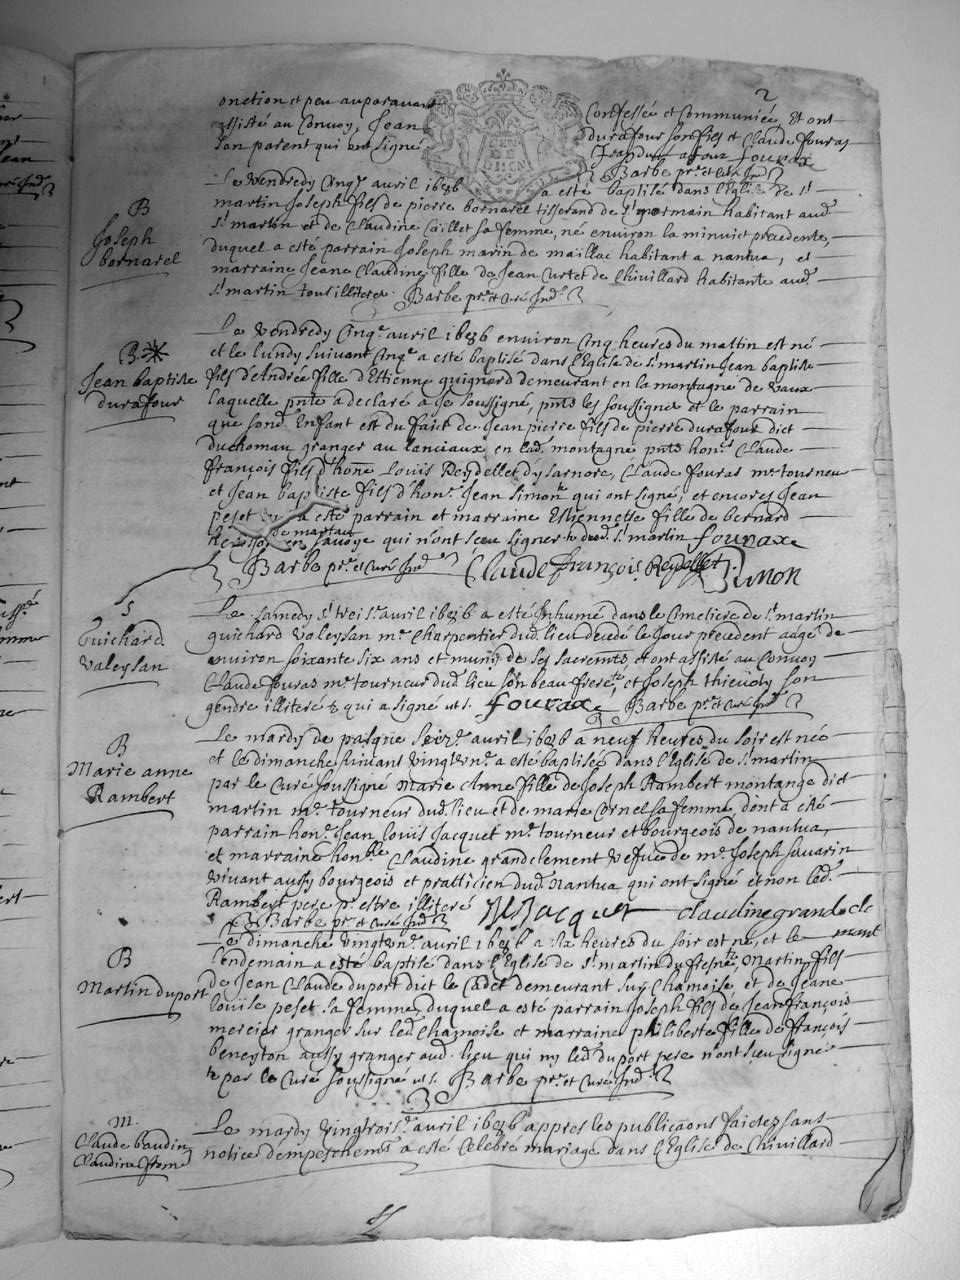 2
onction et peu auparavant Confessée et Communiée Et ont
assisté au Convoy, Jean durafour son fils et Claude fouras
son parent qui ont signé Jean durafour fouraxe
Barbe pr. et Curé Ind.
B
Joseph
bornarel
Le Vendredy Cinqe avril 1686 a esté baptisé dans l'Eglise de St
martin Joseph fils de pierre bornarel tisserand de St germain habitant aud.
St martin et de Claudine Caillet sa femme, né environ la minuict precedente,
duquel a esté parrain Joseph marin de maillac habitant a nantua, et
marraine Jeane Claudine fille de Jean Curtet de Chivillard habitante aud.
St martin tous illiterez. Barbe pr. et Curé Ind.
B
Jean baptiste
durafour
Le Vendredy Cinqe avril 1686 environ Cinq heures du mattin est né
et le lundy suivant a esté baptisé dans l'Eglise de St martin Jean baptiste
fils d'Andrée fille d'Estienne guignard demeurant en la montagne de Vaux
laquelle pnte a declaré a Je soussigné, pnts les soussignez et le parrain
que sond. Enfant est du faict de Jean pierre fils de pierre durafour dict
duchoman granger au lanciaux en lad. montagne pnts hon. Claude
françois fils d'hone Louis Reydellet dysarnore, Claude fouras me tourneur
et Jean baptiste fils d'hon. Jean simon qui ont signé, et encores Jean
peset a esté parrain et marraine Estiennette fille de bernard
de martai
en savoye qui n'ont sceu signer dud. St martin fouraxe
Barbe pr. et Curé Ind. Claude françois Reydellet Simon
S
Guichard
Valeysan
Le samedy St avril 1686 a esté Inhumé dans le Cimetiere de St martin
guichard Valeysan me Charpentier dud. lieu decedé le Jour precedent aagé de
environ soixante six ans et muny de ses sacremts, et ont assisté au Convoy
Claude fouras me tourneur dud. lieu son beau frere, et Joseph thievoly son
gendre illiteré & qui a signé fouraxe Barbe pr. et Curé Ind.
B
Marie anne
Rambert
Le mardy de pasque avril 1686 a neuf heures du soir est née
et le dimanche suivant vingtun. a esté baptisée dans l'Eglise de St martin
par le Curé soussigné Marie Anne fille de Joseph Rambert montange dict
martin me tourneur dud. lieu et de marie Cornel sa femme dont a esté
parrain hon. Jean louis Jacquet me tourneur et bourgeois de nantua,
et marraine honble Claudine grandclement vefve de me Joseph savarin
vivant aussy bourgeois et pratticien dud. nantua qui ont signé et non led.
Rambert pere pr estre illiteré Jacquet claudine grandcle
Barbe pr. et Curé Ind. mant
B
Martin duport
Le dimanche vingtun. avril 1686 a six heures du soir est né, et le
lendemain a esté baptisé dans l'Eglise de St martin du fresne, Martin, fils
de Jean Claude duport dict le Cadet demeurant sur Chamoise, et de Jeane
louise peset sa femme, duquel a esté parrain Joseph fils de Jean françois
mercier granger sur led. Chamoise et marraine philiberte fille de françois
beneyton aussy granger aud. lieu qui ny led. duport pere n'ont sceu signer
par le Curé soussigné Barbe pr. et Curé Ind.
M.
Claude baudin
Claudine
Le mardy vingtrois. avril 1686 appres les publicaons faictes sans
notice dempeschemt a esté Celebré mariage dans l'Eglise de Chivillard